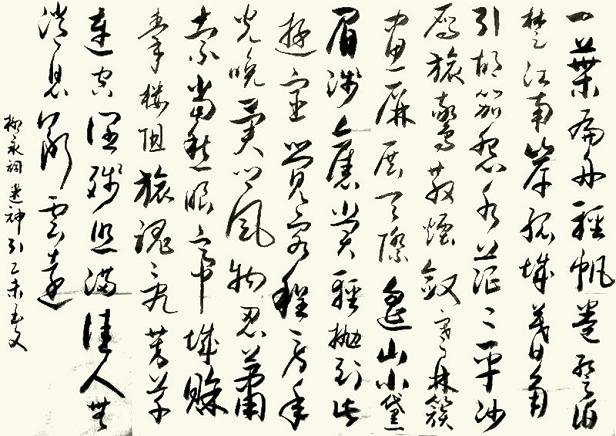 一葉扁舟輕帆卷暫泊
楚江南岸孤城暮角
引胡笳怨水茫〻平沙
雁旋驚散煙斂寒林簇
畫屏展天際遙山小黛
眉淺舊賞輕抛到此
遊宦覺客程勞年
光晚異鄉風物忍蕭
索當愁眼帝城賒
秦樓阻旅魂亂芳草
連空闊殘照滿佳人無
消息斷雲遠
柳永詞迷神引乙未